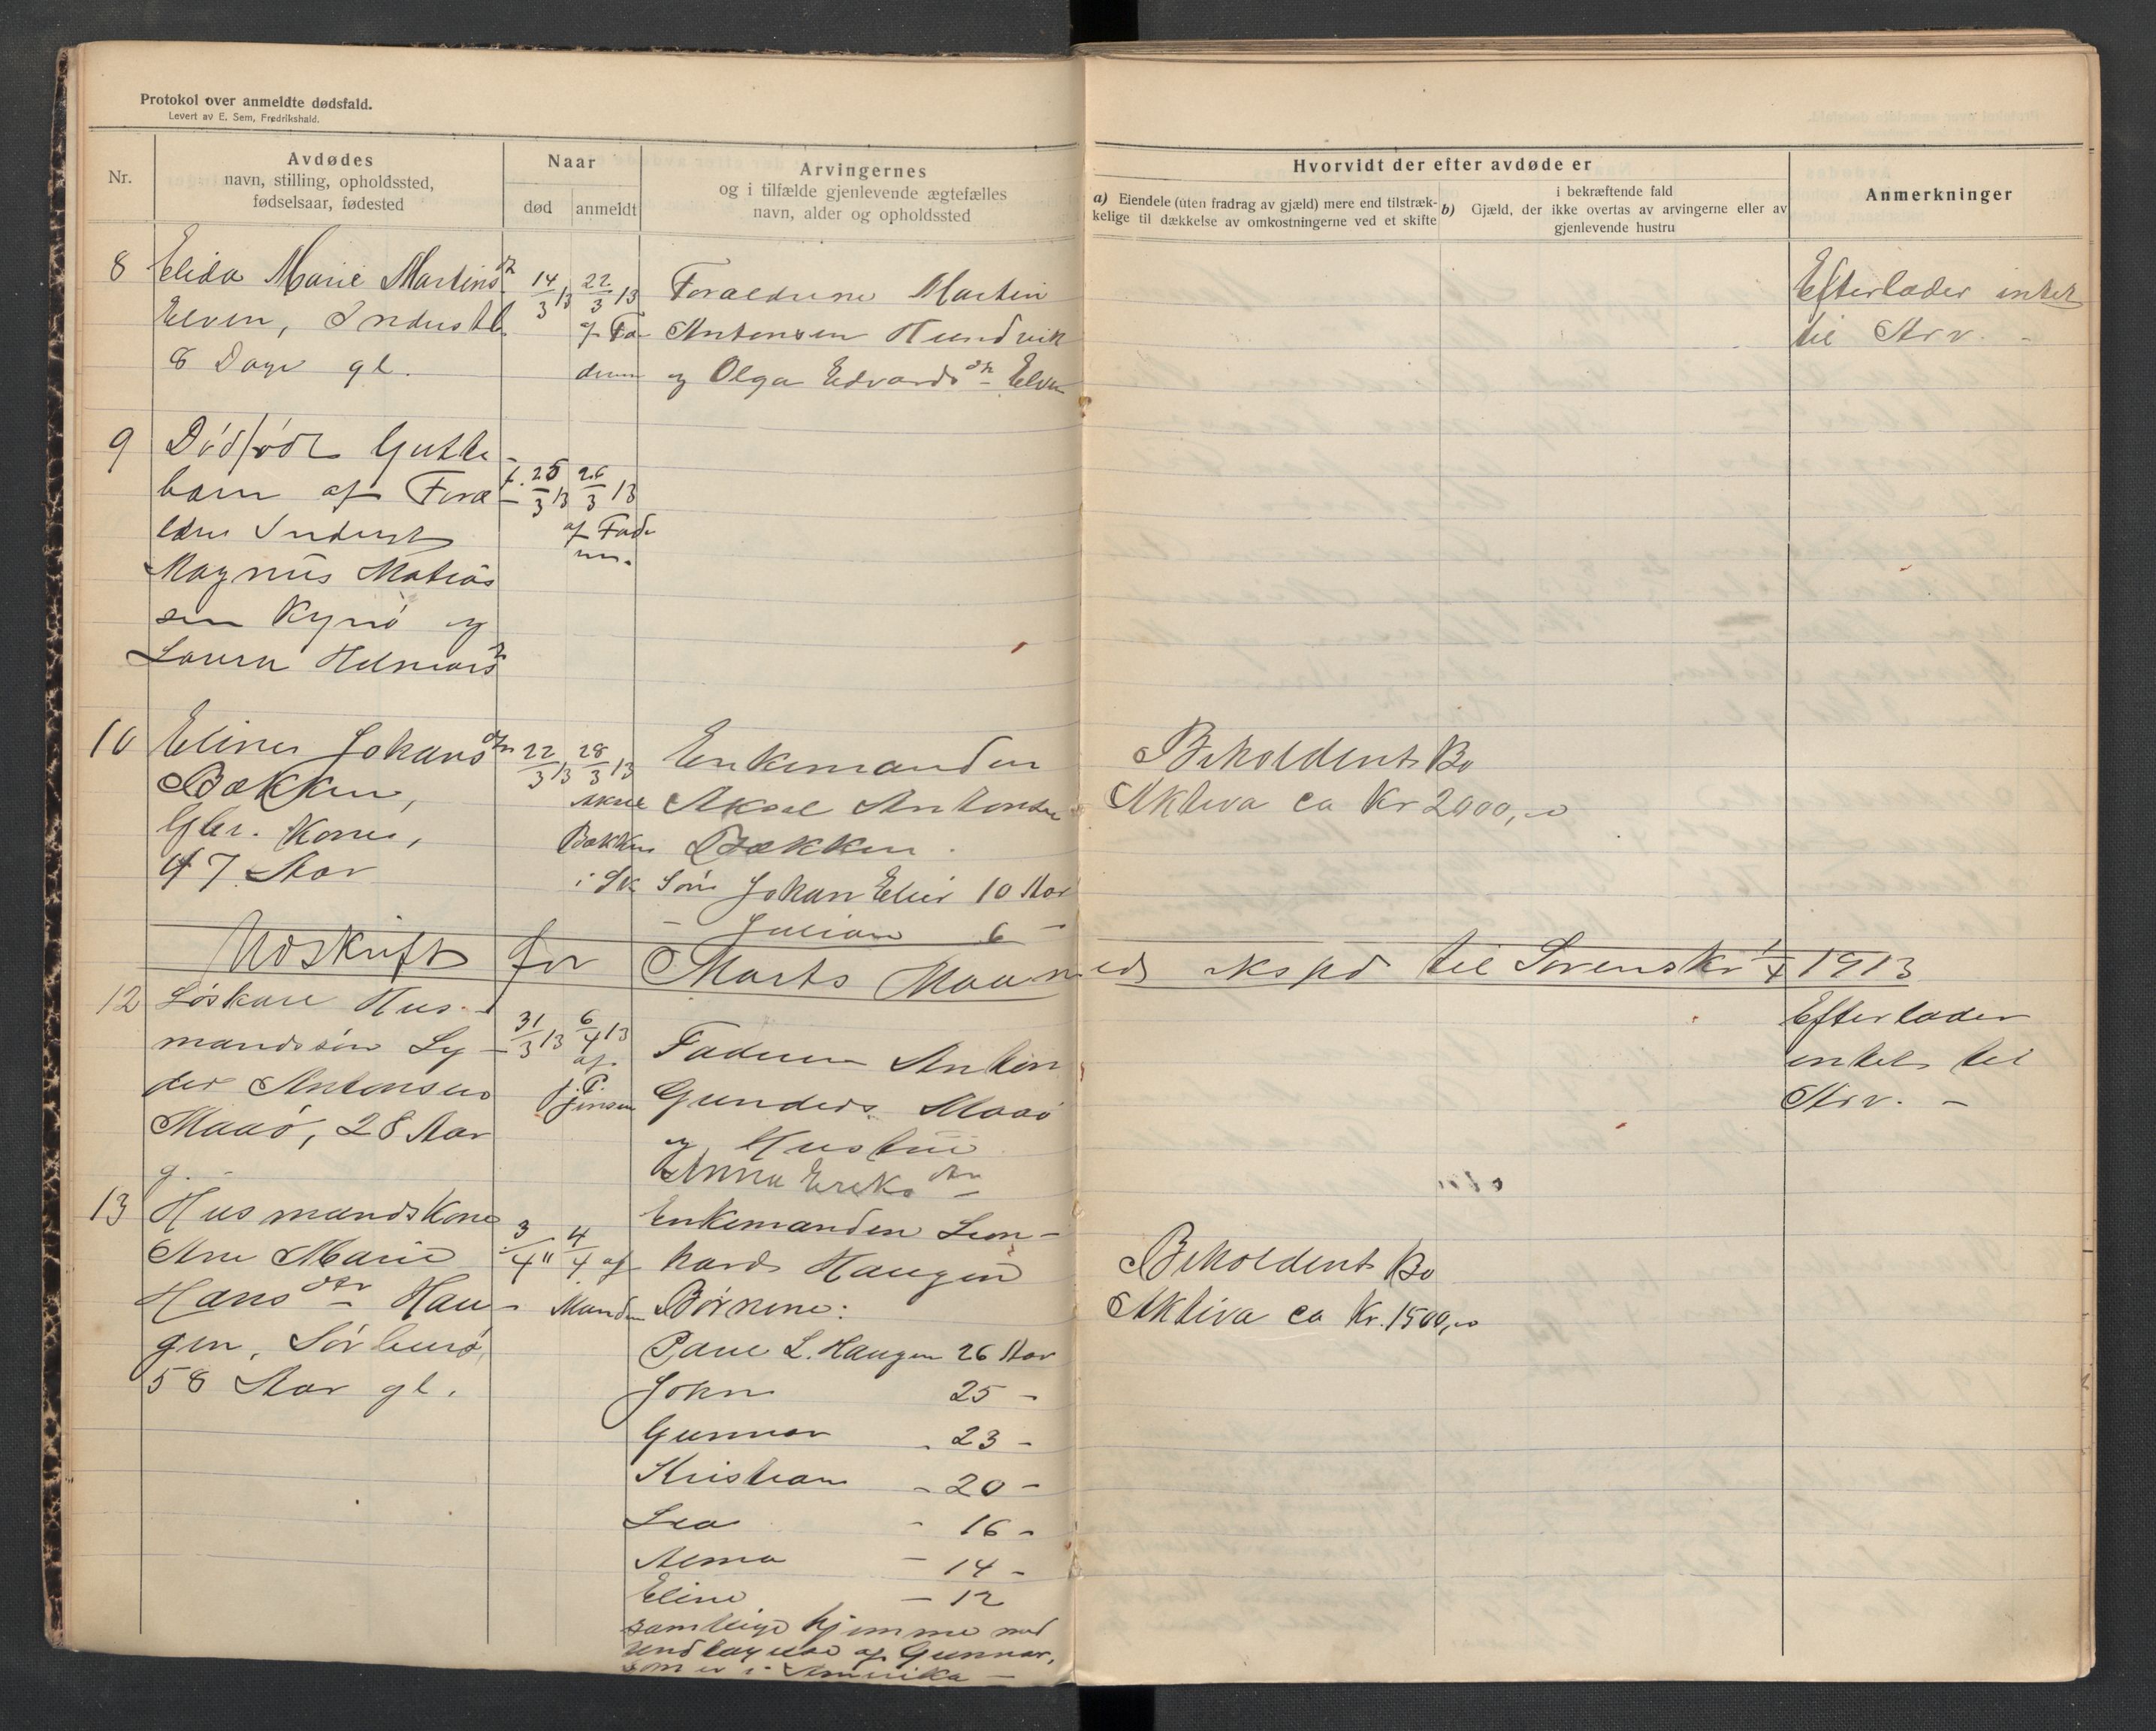 Protokol over anmeldte dødsfald.
Levert av E. Sem, Fredrikshald.
Nr.
Avdødes
navn, stilling, opholdssted,
fødselsaar, fødested
Naar
død
anmeldt
Arvingernes
og i tilfælde gjenlevende ægtefælles
navn, alder og opholdssted
Hvorvidt der efter avdøde er
a) Eiendele (uten fradrag av gjæld) mere end tilstræk-
kelige til dækkelse av omkostningerne ved et skifte
b) Gjæld, der
i bekræftende fald
ikke overtas av arvingerne eller av
gjenlevende hustru
Anmerkninger
8
Elida Marie Martinsdt
Elven, Inderst
8 Dage gl.
14/3 13
22/3 13
af Fa
deren
Forældrene Martin
Antonsen Hundvik
og Olga Edvardsdt Elven
Efterlader intet
til Arv. -
9
Dødfødt Gutte-
barn af Foræ-
ldre Inderst
Magnus Matias
sen Kynø og
Laura Helmersdt
f. 25/3 13
26/3 13
af Fade
ren.
10
Eline Johansdtr
Bækken,
Gbr. Kone,
47 Aar
22/3 13
28/3 13
Aksel
Bækken
Enkemanden
Aksel Antonsen
Bækken.
Søn Johan Elier 10 Aar
- Julian 6 -
Beholdent Bo
Aktiva ca Kr 2000,00
Udskrift for Marts Maaned ekspd til Sorenskr 1/4 1913
12
Løskarl Hus-
mandssøn Ly-
der Antonsen
Maaø, 28 Aar
g.
31/3 13
6/4 13
af
P.
Jensen
Faderen Anton
Gunders. Maaø
og Hustru
Anna Eriksdtr
Efterlader
intet til
Arv. -
13
Husmandskone
Ane Marie
Hansdtr Hau-
gen, Sørburø,
58 Aar gl.
3/4 "
4/4 af
Manden
Enkemanden Leon-
hard Haugen
Børnene:
Paul L. Haugen 26 Aar
John 25 -
Gunnar - 23 -
Kristian - 20 -
Lea - 16 -
Alma - 14 -
Eline - 12
samtlige hjemme med
undtagelse af Gunnar,
som er i Amerika -
Beholdent Bo
Aktiva ca Kr. 1500,00